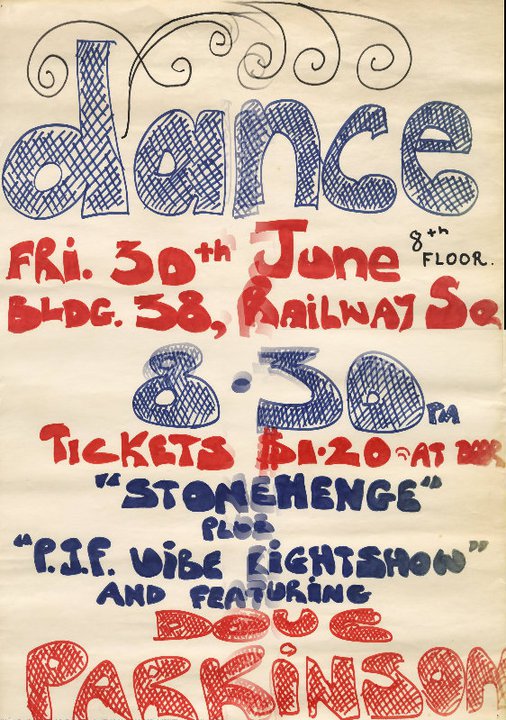 dance
FRi. 30th June 8th FLOOR.
BLDG. 38, RAiLWAY SQ
8.30 PM
TICKETS $1.20 AT DOOR
"STONEHENGE"
PLUS
"P.I.F. ViBE LiGHTSHOW"
AND FEATURiNG
DOUG
PARKiNSON